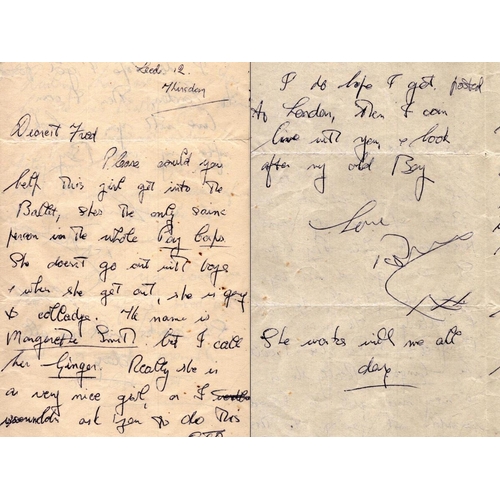 Leeds 12
Thursday
Dearest Fred
Please could you
help this girl get into the
Ballet, shes the only sane
person in the whole Pay Corps
She doesn't go out with boys
& when she get out, she is going
to colladge. The name is
Margurette Smith but I call
her Ginger. Really she is
a very nice girl, or I
wouldn't ask you to do this
PTO
I do hope I get posted
to London, then I can
live with you & look
after my old Boy
Love
She works with me all
day